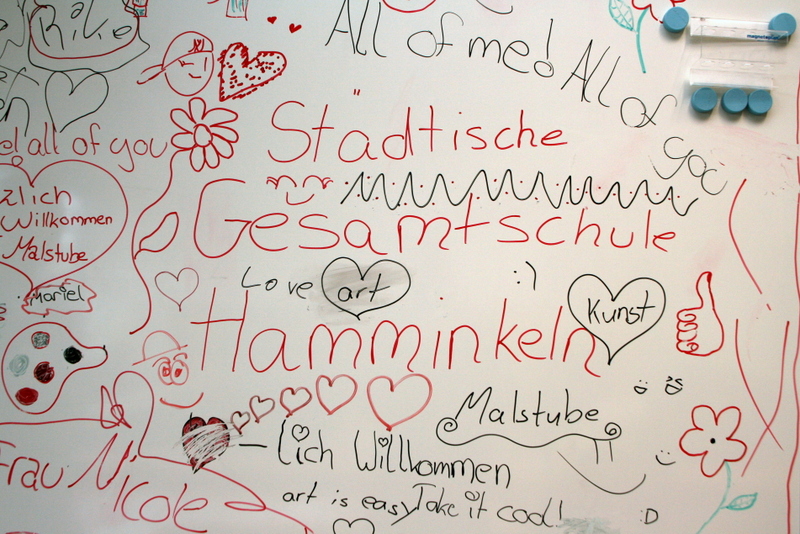 Rike
All of me! All of
you
all of you
Städtische
Gesamtschule
zlich
Willkommen
Malstube
Mariel
Love art
:)
Kunst
Hamminkeln
Malstube
– lich Willkommen
Frau Nicole
art is easy Take it cool!
:D